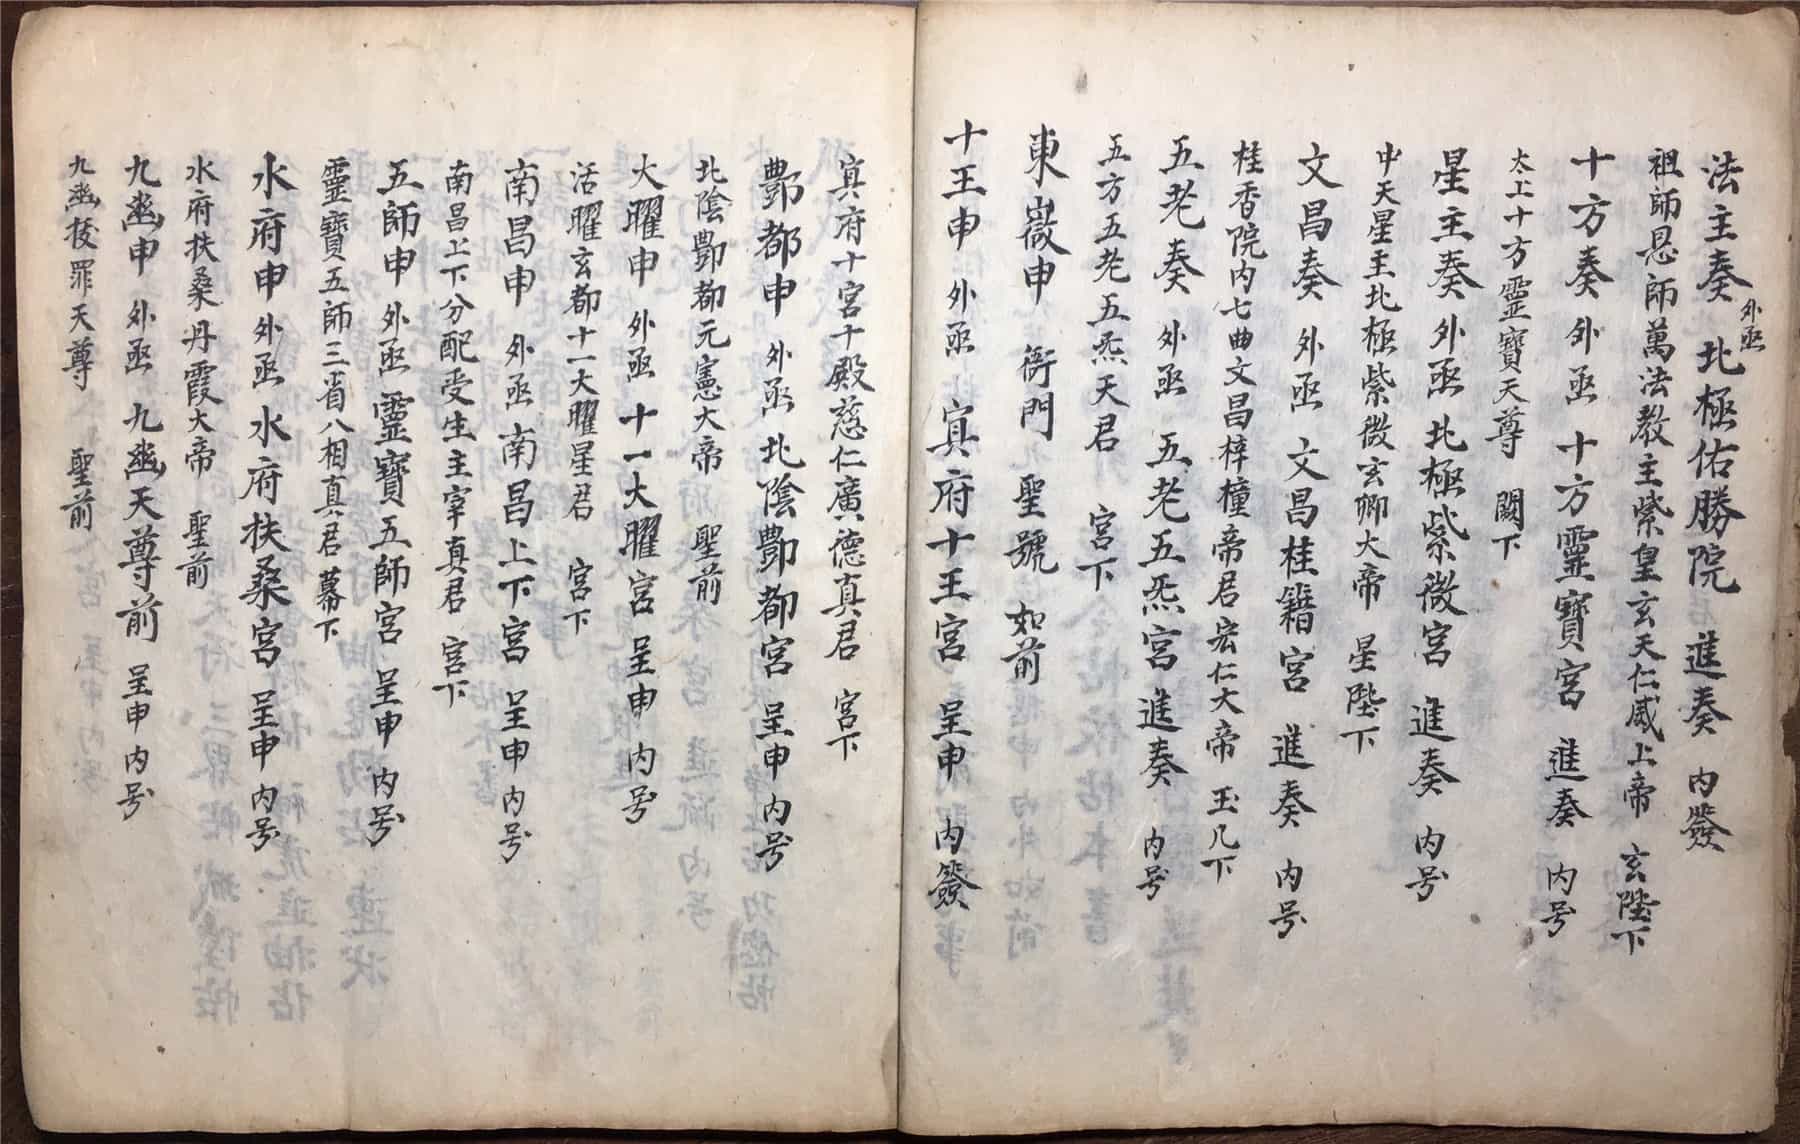 法主奏 外亟 北極佑勝院 進奏 內發
祖師恳師萬法教主紫皇玄天仁威上帝 玄陛下
十方奏 外亟 十方靈寶宮 進奏 內号
太上十方靈寶天尊 闕下
星主奏 外亟 北極紫微宮 進奏 內号
中天星主北極紫微玄卿大帝 星陛下
文昌奏 外亟 文昌桂籍宮 進奏 內号
桂香院內七曲文昌梓橦帝君宏仁大帝 玉几下
五老奏 外亟 五老五炁宮 進奏 內号
五方五老五炁天君 宮下
東嶽申 衙門 聖號 如前
十王申 外亟 冥府十王宮 呈申 內發
冥府十宮十殿慈仁廣德真君 宮下
酆都申 外亟 北陰酆都宮 呈申 內号
北陰酆都元憲大帝 聖前
大曜申 外亟 十一大曜宮 呈申 內号
活曜玄都十一大曜星君 宮下
南昌申 外亟 南昌上下宮 呈申 內号
南昌上下分配受生主宰真君 宮下
五師申 外亟 靈寶五師宮 呈申 內号
靈寶五師三省八相真君 幕下
水府申 外亟 水府扶桑宮 呈申 內号
水府扶桑丹霞大帝 聖前
九幽申 外亟 九幽天尊前 呈申 內号
九幽拔罪天尊 聖前